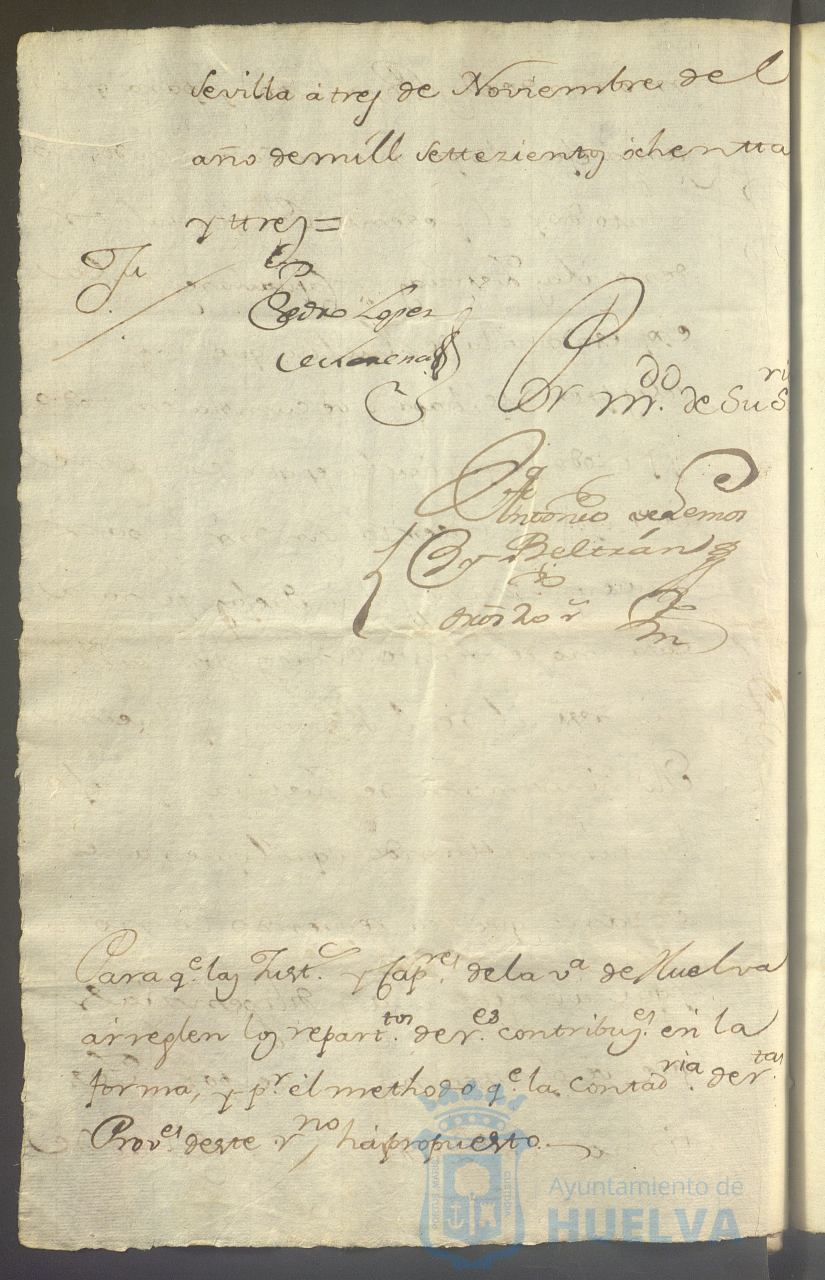 Sevilla à tres de Noviembre del
año de mill settezientos ôchentta
y ttres =
Pedro Lopez
de Lerena
Por m.do de Su S.ria
Antonio de Lemos
y Beltrán
Para q.e las Just.s y Cap.res de la v.a de Huelva
arreglen los repart.tos de r.es contribus.es en la
forma, y p.r el methodo q.e la Contad.ria de r.tas
Prov.es deste r.no há propuesto.
PORTUS MARIS
CUSTODIA
Ayuntamiento de
HUELVA